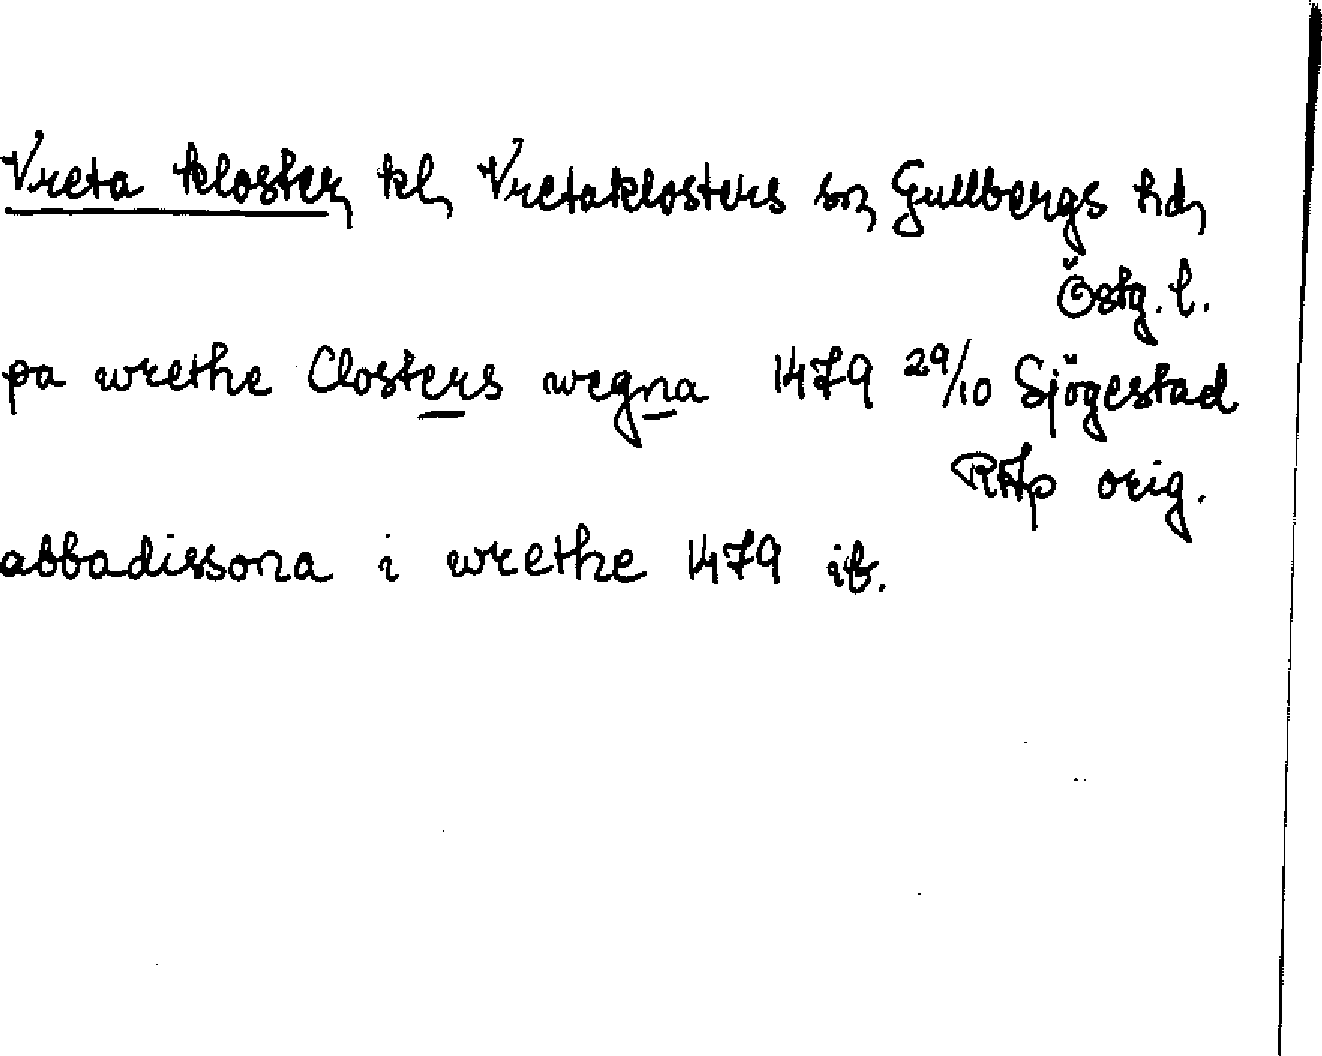 Vreta kloster, kl, Vretaklosters sn, Gullbergs hd,
Östg. l.
pa wrethe Closters wegna 1479 29/10 Sjögestad
RAp orig.
abbadissona i wrethe 1479 ib.